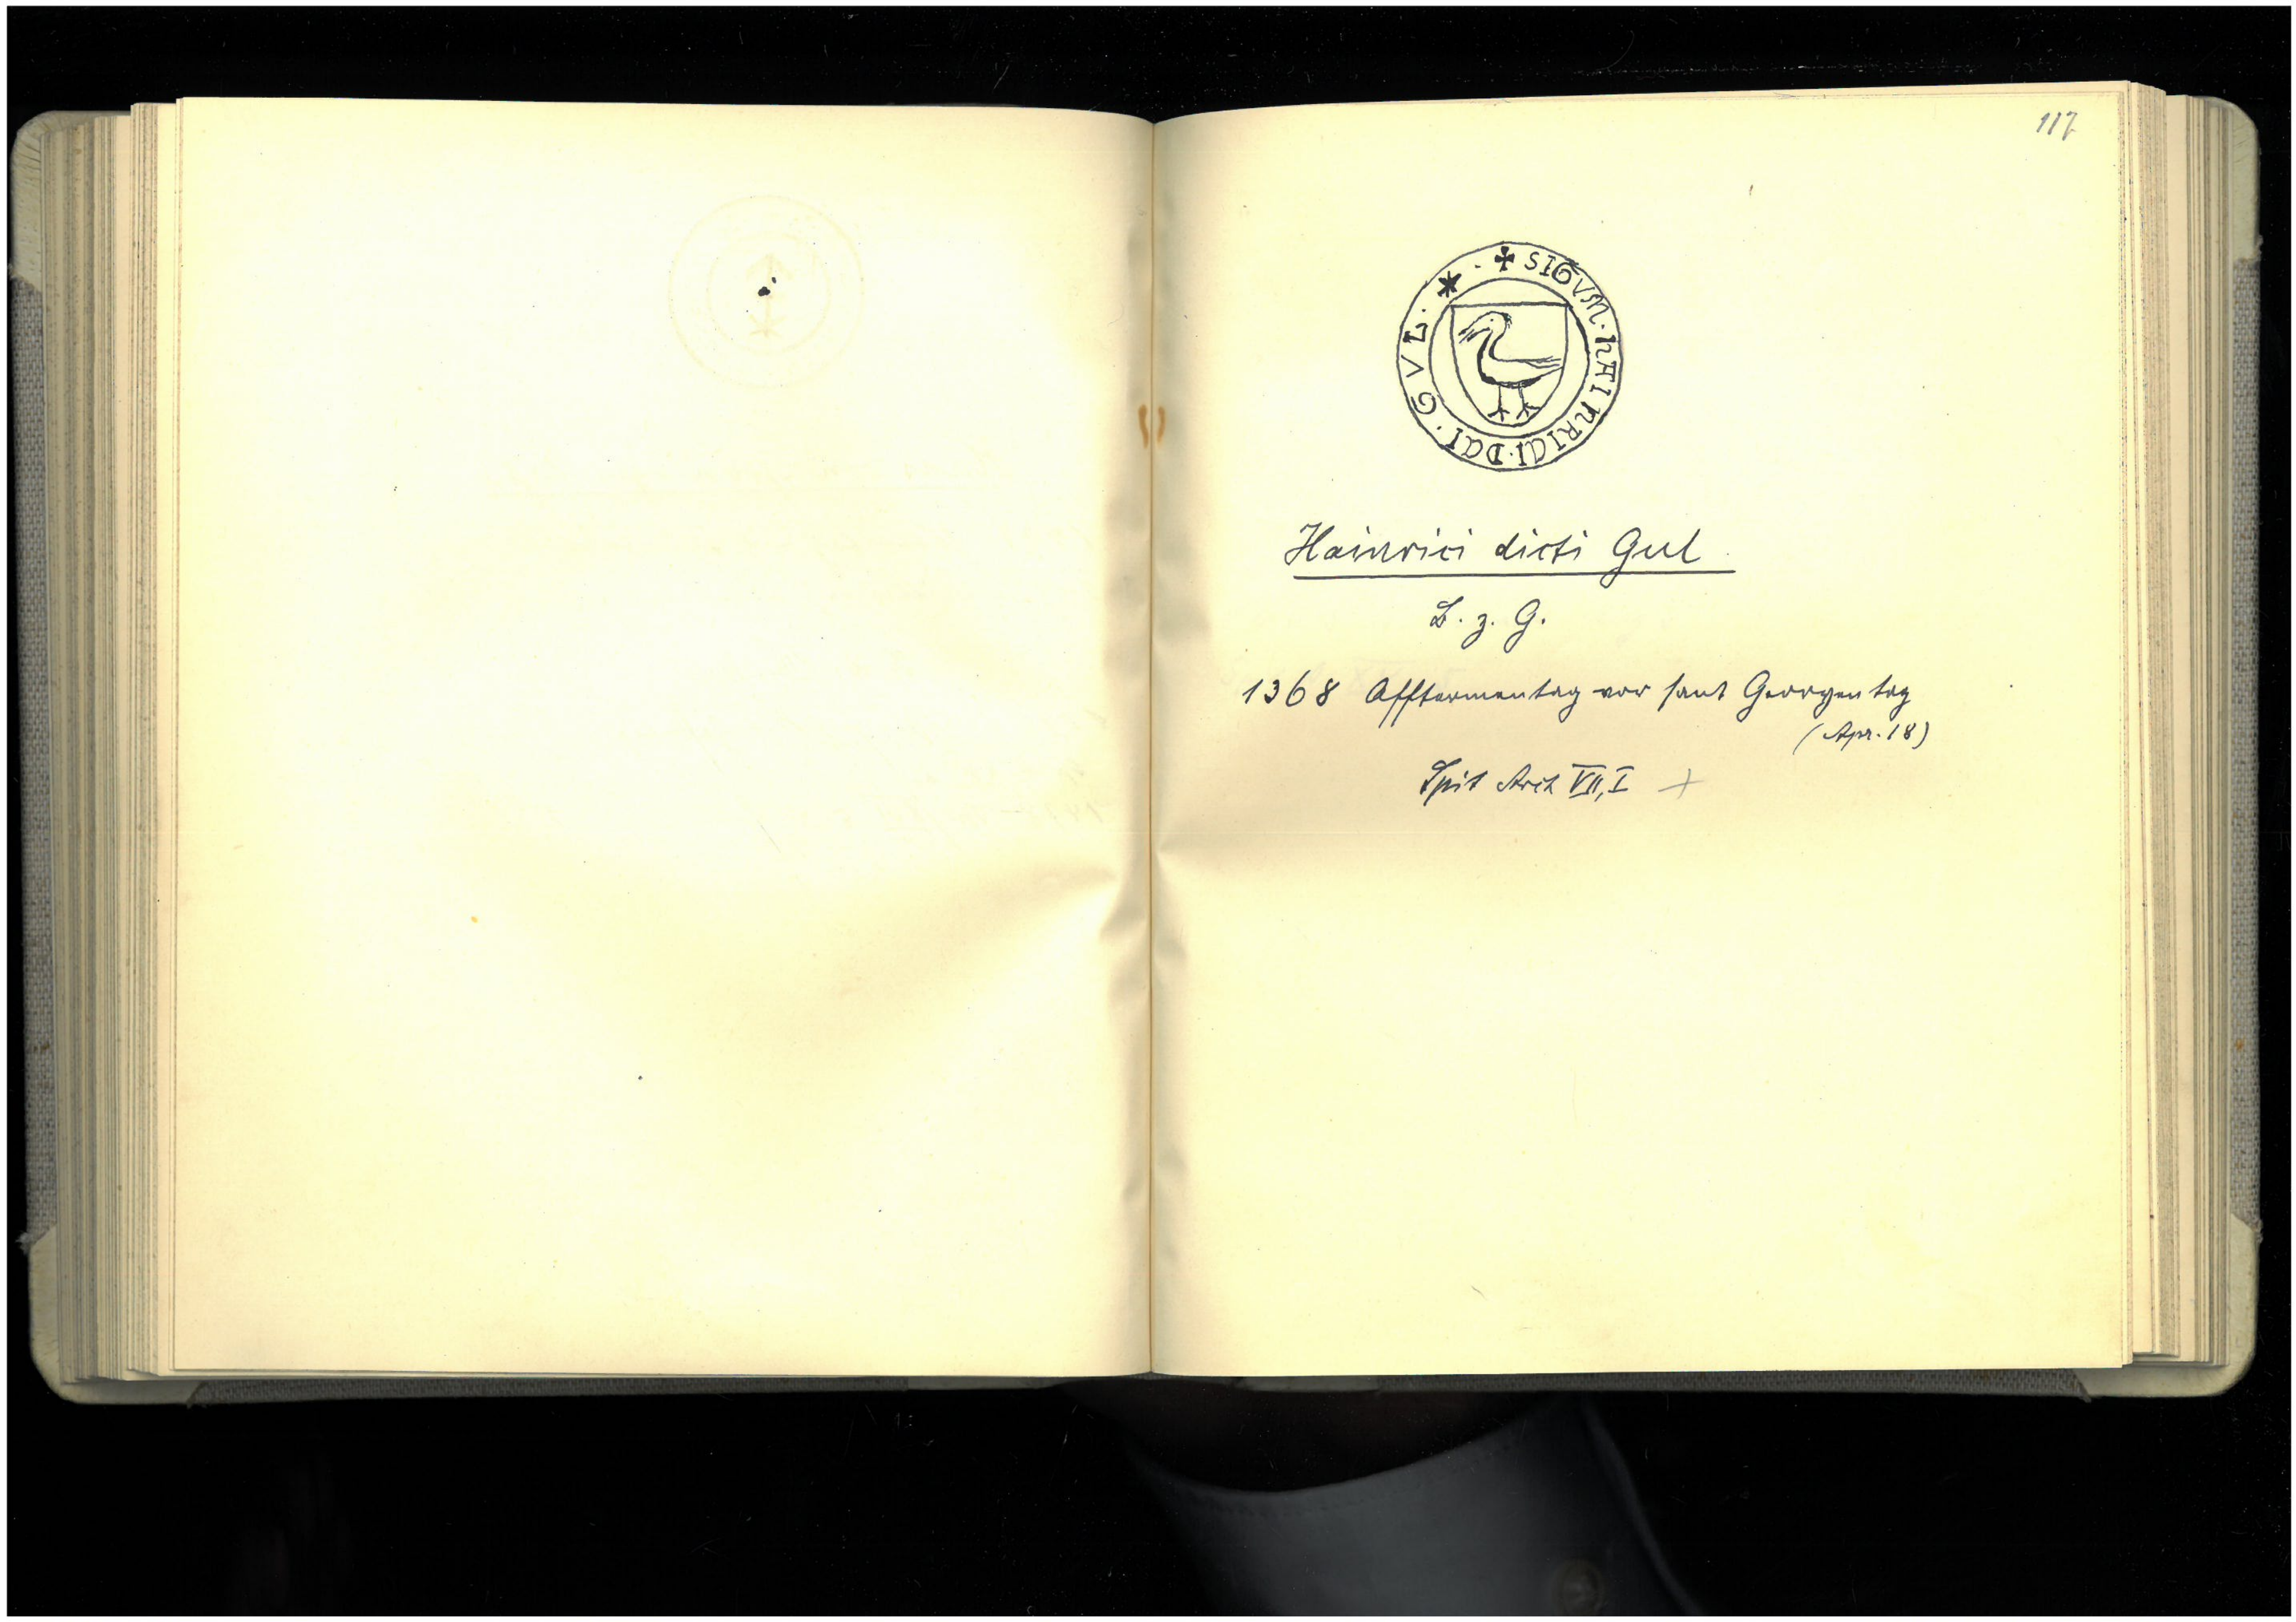 117
✠ SIGVM · HAINRICI · DCI · GVL · * ·
Hainrici dicti Gul
B. z. G.
1368 Afftermentag vor sant Georgentag
(Apr. 18)
Spit Arch VII, I +